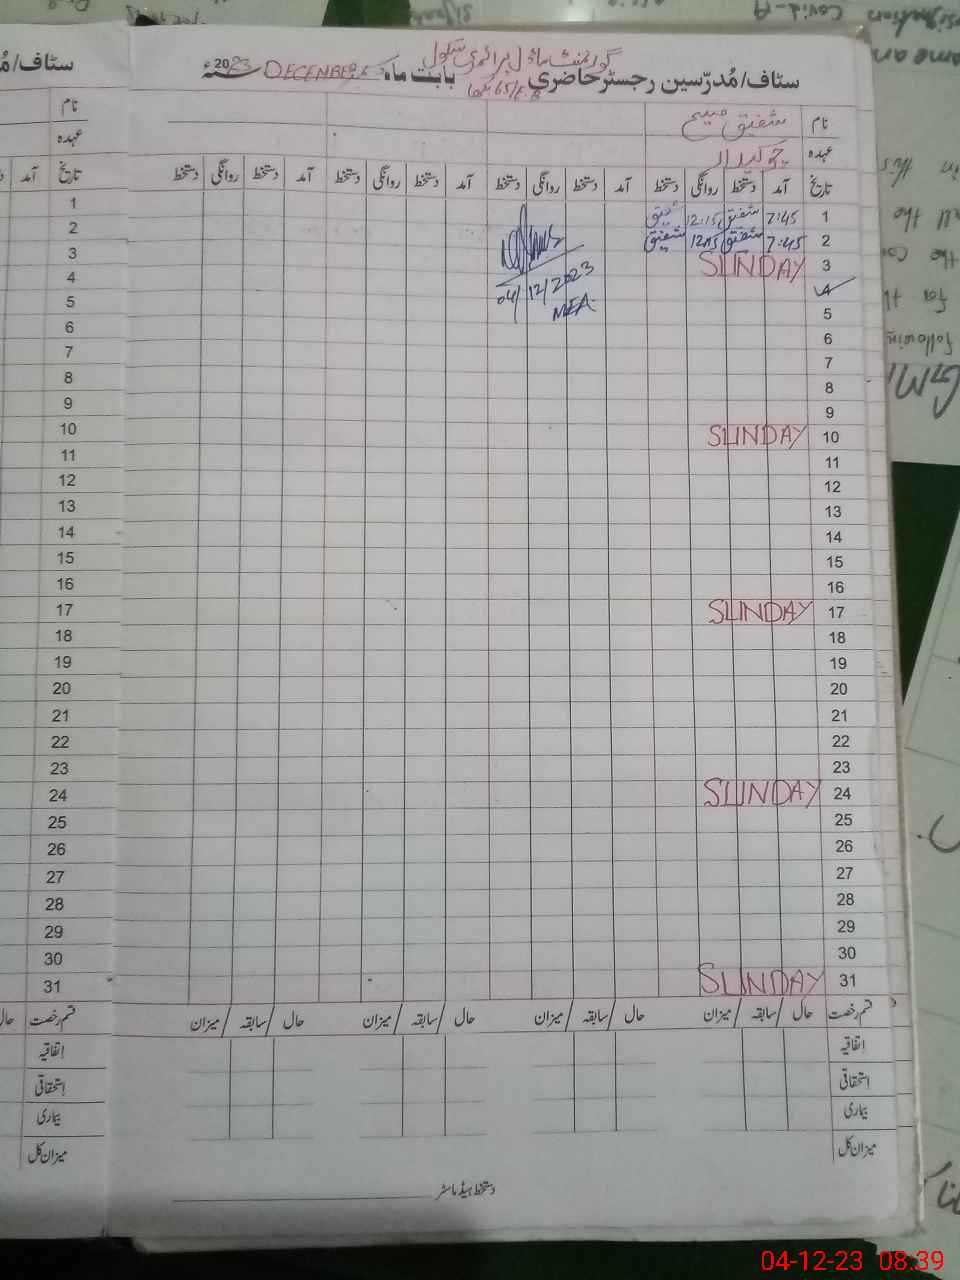 گورنمنٹ ماڈل پرائمری سکول
سٹاف/مُدرّسین رجسٹر حاضری بابت ماہ DECEMBER سنہ 2023ء
65/E.B
نام شفیق مسیح
عہدہ چوکیدار
تاریخ آمد دستخط روانگی دستخط آمد دستخط روانگی دستخط آمد دستخط روانگی دستخط آمد دستخط روانگی دستخط
1 7:45 شفیق 12:15 شفیق
2 7:45 شفیق 12:15 شفیق
3 SUNDAY
4
04/12/2023
5
MEA
6
7
8
9
10 SUNDAY
11
12
13
14
15
16
17 SUNDAY
18
19
20
21
22
23
24 SUNDAY
25
26
27
28
29
30
31 SUNDAY
قسم رخصت حال / سابقہ / میزان حال / سابقہ / میزان حال / سابقہ / میزان حال / سابقہ / میزان
اتفاقیہ
استحقاقی
بیماری
میزان کل
دستخط ہیڈ ماسٹر
سٹاف/مُ
نام
عہدہ
تاریخ آمد
1
2
3
4
5
6
7
8
9
10
11
12
13
14
15
16
17
18
19
20
21
22
23
24
25
26
27
28
29
30
31
قسم رخصت حال
اتفاقیہ
استحقاقی
بیماری
میزان کل
Covid-19
in this
all the
the
for
following
GM
04-12-23 08:39